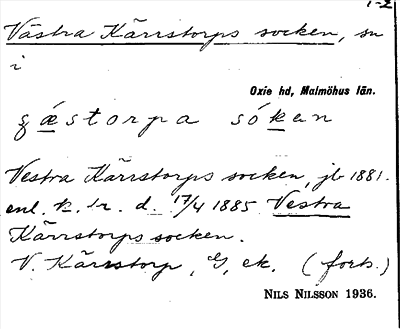 1-2
Västra Kärrstorps socken, sn
i
Oxie hd, Malmöhus län.
çǽstorpa sókan
Vestra Kärrstorps socken, jb 1881.
enl. k. br. d. 17/4 1885 Vestra
Kärrstorps socken.
V. Kärrstorp, G, ek. (forts.)
NILS NILSSON 1936.